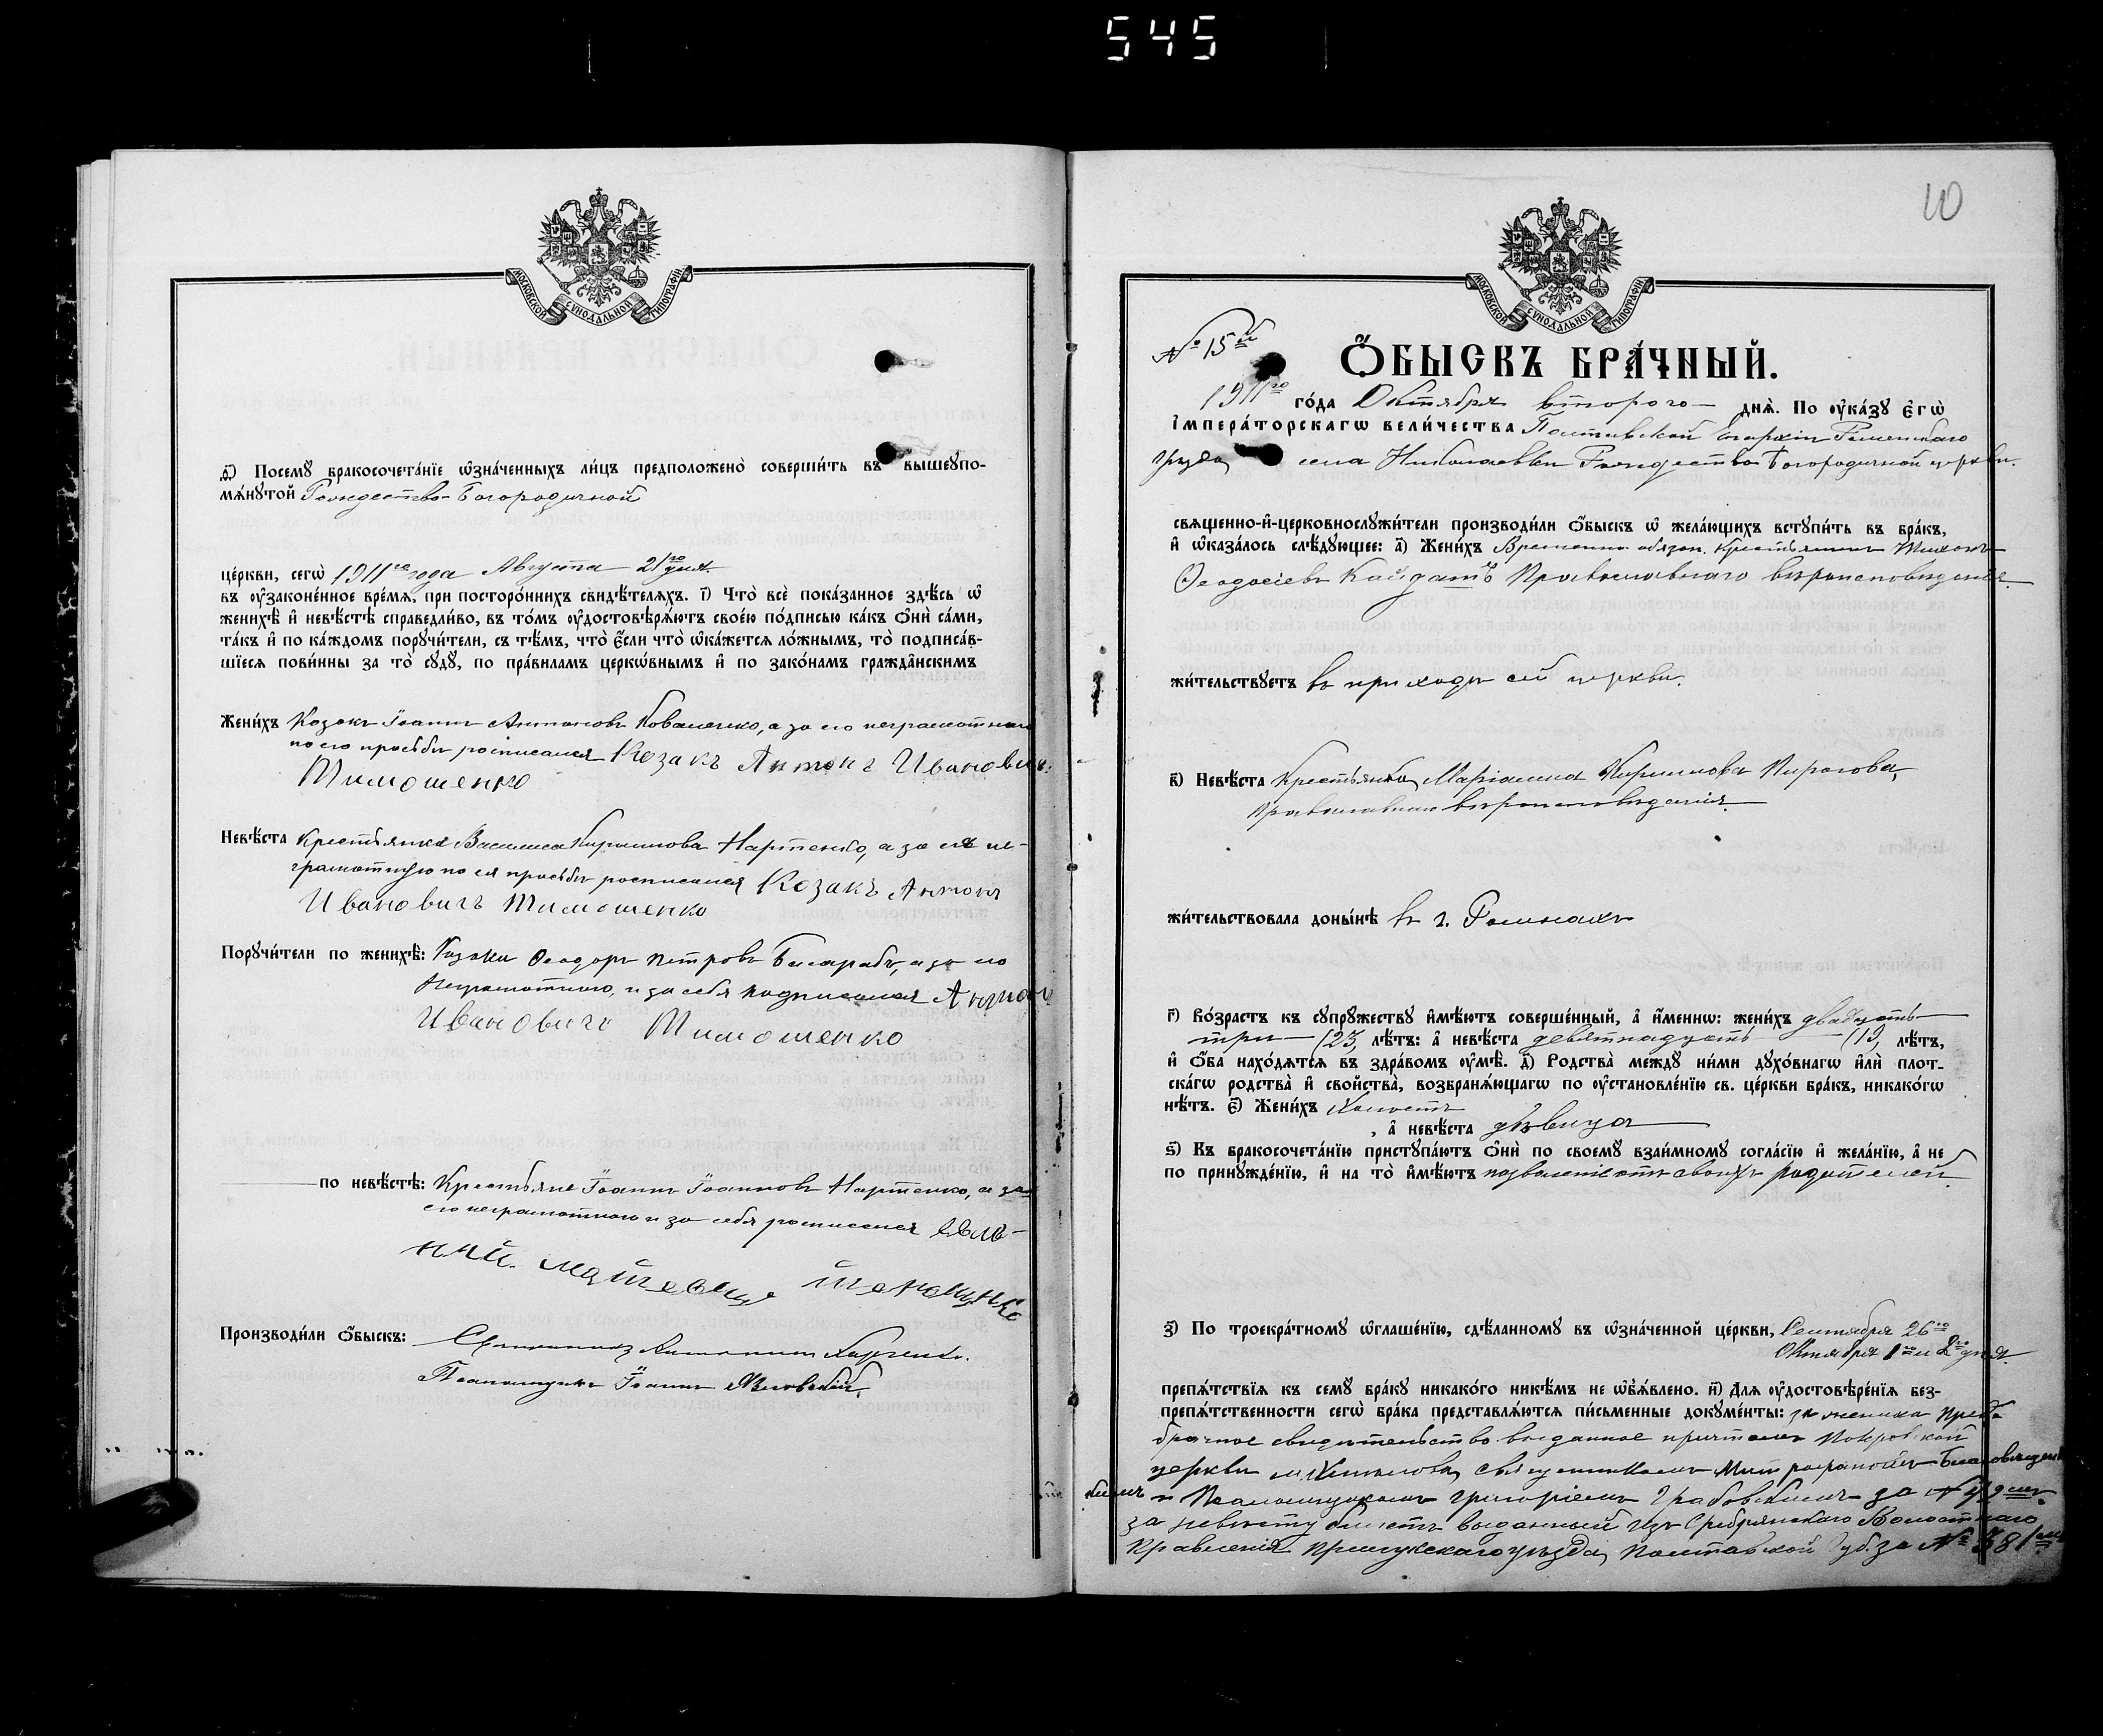 545
МОСКОВСКОЙ СУНОДАЛЬНОЙ ТИПОГРАФІИ
д҃) Посемꙋ бракосочета́нїе ѡ҆зна́ченныхъ ли́цъ предположено̀ соверши́ть въ вышеꙋпо-
мѧ́нꙋтой Рождество-Богородичной
це́ркви, сегѡ̀ 1911го года Августа 21го дня.
въ ᲂу҆законе́нное вре́мѧ, при посторо́ннихъ свидѣ́телѧхъ. і҃) Что̀ всѐ пока́занное здѣ́сь ѡ҆
женихѣ̀ и҆ невѣ́стѣ справедли́во, въ то́мъ ᲂу҆достовѣрѧ́ютъ свое́ю по́дписью ка́къ ѻ҆нѝ са́ми,
та́къ и҆ по ка́ждомъ порꙋчи́тели, съ тѣ́мъ, что̀ є҆́сли что̀ ѡ҆ка́жетсѧ ло́жнымъ, то̀ подписа́в-
шїесѧ пови́нны за то̀ сꙋдꙋ̀, по пра́виламъ церкѡ́внымъ и҆ по зако́намъ гражда̂нскимъ
Жени́хъ Козакъ Іоаннъ Антоновъ Коваленко, а за его неграмотнаго
по его просьбѣ росписался Козакъ Антонъ Ивановичъ
Тимошенко
Невѣ́ста Крестьянка Василиса Кириллова Нартенко, а за ея не-
грамотную по ея просьбѣ росписался Козакъ Антонъ
Ивановичъ Тимошенко
Порꙋчи́тели по женихѣ̀: Козаки Ѳеодоръ Петровъ Бисарабъ, а за его
неграмотнаго, и за себя подписался Антонъ
Ивановичъ Тимошенко
по невѣ́стѣ: Крестьяне Іоаннъ Іоанновъ Нартенко, а за
его неграмотнаго и за себя росписался
Производи́ли ѻ҆́быскъ: Священникъ
Псаломщикъ Іоаннъ
10
МОСКОВСКОЙ СУНОДАЛЬНОЙ ТИПОГРАФІИ
№ 15й
Ѻ҆́БЫСКЪ БРА́ЧНЫЙ.
1911го го́да Октября второго днѧ̀. По ᲂу҆ка́зꙋ є҆гѡ̀
і҆мпера́торскагѡ вели́чества Полтавской Епархіи Роменскаго
уѣзда села Николаевки Рождество-Богородичной церкви.
свѧще́нно-и҆-церковнослꙋжи́тели производи́ли ѻ҆́быскъ ѡ҆ жела́ющихъ вступи́ть въ бра́къ,
и҆ ѡ҆каза́лось слѣ́дꙋющее: а҃) Жени́хъ Временно обязан. крестьянинъ Тихонъ
Ѳеодосіевъ Православнаго вѣроисповѣданія
жи́тельствꙋетъ въ приходѣ сей церкви.
в҃) Невѣ́ста Крестьянка Маріамна Кириллова Пирогова,
Православнаго вѣроисповѣданія.
жи́тельствовала доны́нѣ въ г. Ромнахъ
г҃) Во́зрастъ къ сꙋпрꙋ́жествꙋ и҆мѣ́ютъ соверше́нный, а҆ и҆́меннѡ: жени́хъ двадцать
три (23, лѣ́тъ: а҆ невѣ́ста девятнадцать (19, лѣ́тъ,
и҆ ѻ҆́ба нахо́дѧтсѧ въ здра́вомъ ᲂу҆мѣ̀. д҃) Родства̀ междꙋ ни́ми дꙋхо́внагѡ и҆лѝ плот-
ска́гѡ родства̀ и҆ сво́йства̀, возбранѧ́ющагѡ по ᲂу҆становле́нїю св. це́ркви бра́къ, никако́гѡ
нѣ́тъ. є҃) Жени́хъ Холостъ
, а҆ невѣ́ста дѣвица
ѕ҃) Къ бракосочета́нїю пристꙋпа́ютъ ѻ҆нѝ по своемꙋ̀ взаи́мномꙋ согла́сїю и҆ жела́нїю, а҆ не
по принꙋжде́нїю, и҆ на то̀ и҆мѣ́ютъ позволеніе отъ своихъ родителей.
з҃) По троекра́тномꙋ ѡ҆глаше́нїю, сдѣ́ланномꙋ въ ѡ҆зна́ченной це́ркви, Сентября 26го
Октября 1го и 2го дня.
препѧ́тствїѧ къ семꙋ̀ бра́кꙋ никако́го никѣ́мъ не ѡ҆б̾ѧ́влено. и҃) Длѧ ᲂу҆достовѣре́нїѧ без-
препѧ́тственности сегѡ̀ бра́ка представлѧ́ютсѧ пи́сьменные докꙋме́нты: за жениха пред-
брачное свидѣтельство выданное причтомъ Покровской
церкви священникомъ Митрофаномъ Благовѣщен-
скимъ и Псаломщикомъ Григоріемъ Грабовскимъ за №
за невѣсту билетъ выданный изъ Сребрянскаго Волостного
Правленія Прилукскаго уѣзда, Полтавской губ. за № 381мъ